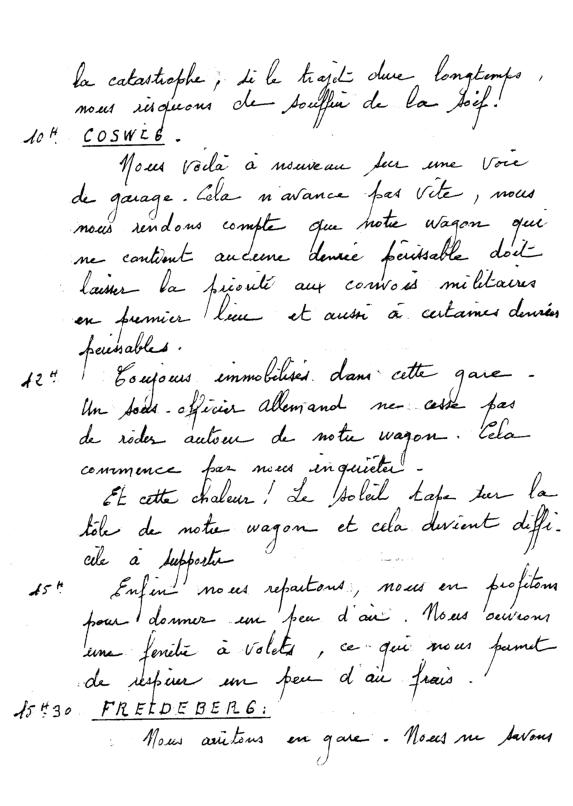 la catastrophe, si le trajet dure longtemps,
nous risquons de souffrir de la soif.
10H COSWIG.
Nous voilà à nouveau sur une voie
de garage. Cela n'avance pas vite, nous
nous rendons compte que notre wagon qui
ne contient aucune denrée périssable doit
laisser la priorité aux convois militaires
en premier lieu et aussi à certaines denrées
périssables.
12H Toujours immobilisés dans cette gare.
Un sous-officier allemand ne cesse pas
de rôder autour de notre wagon. Cela
commence par nous inquiéter.
Et cette chaleur! Le soleil tape sur la
tôle de notre wagon et cela devient diffi-
cile à supporter
15H Enfin nous repartons, nous en profitons
pour donner un peu d'air. Nous ouvrons
une fenêtre à volets, ce qui nous permet
de respirer un peu d'air frais.
15H30 FREIDEBERG:
Nous arrêtons en gare. Nous ne savons